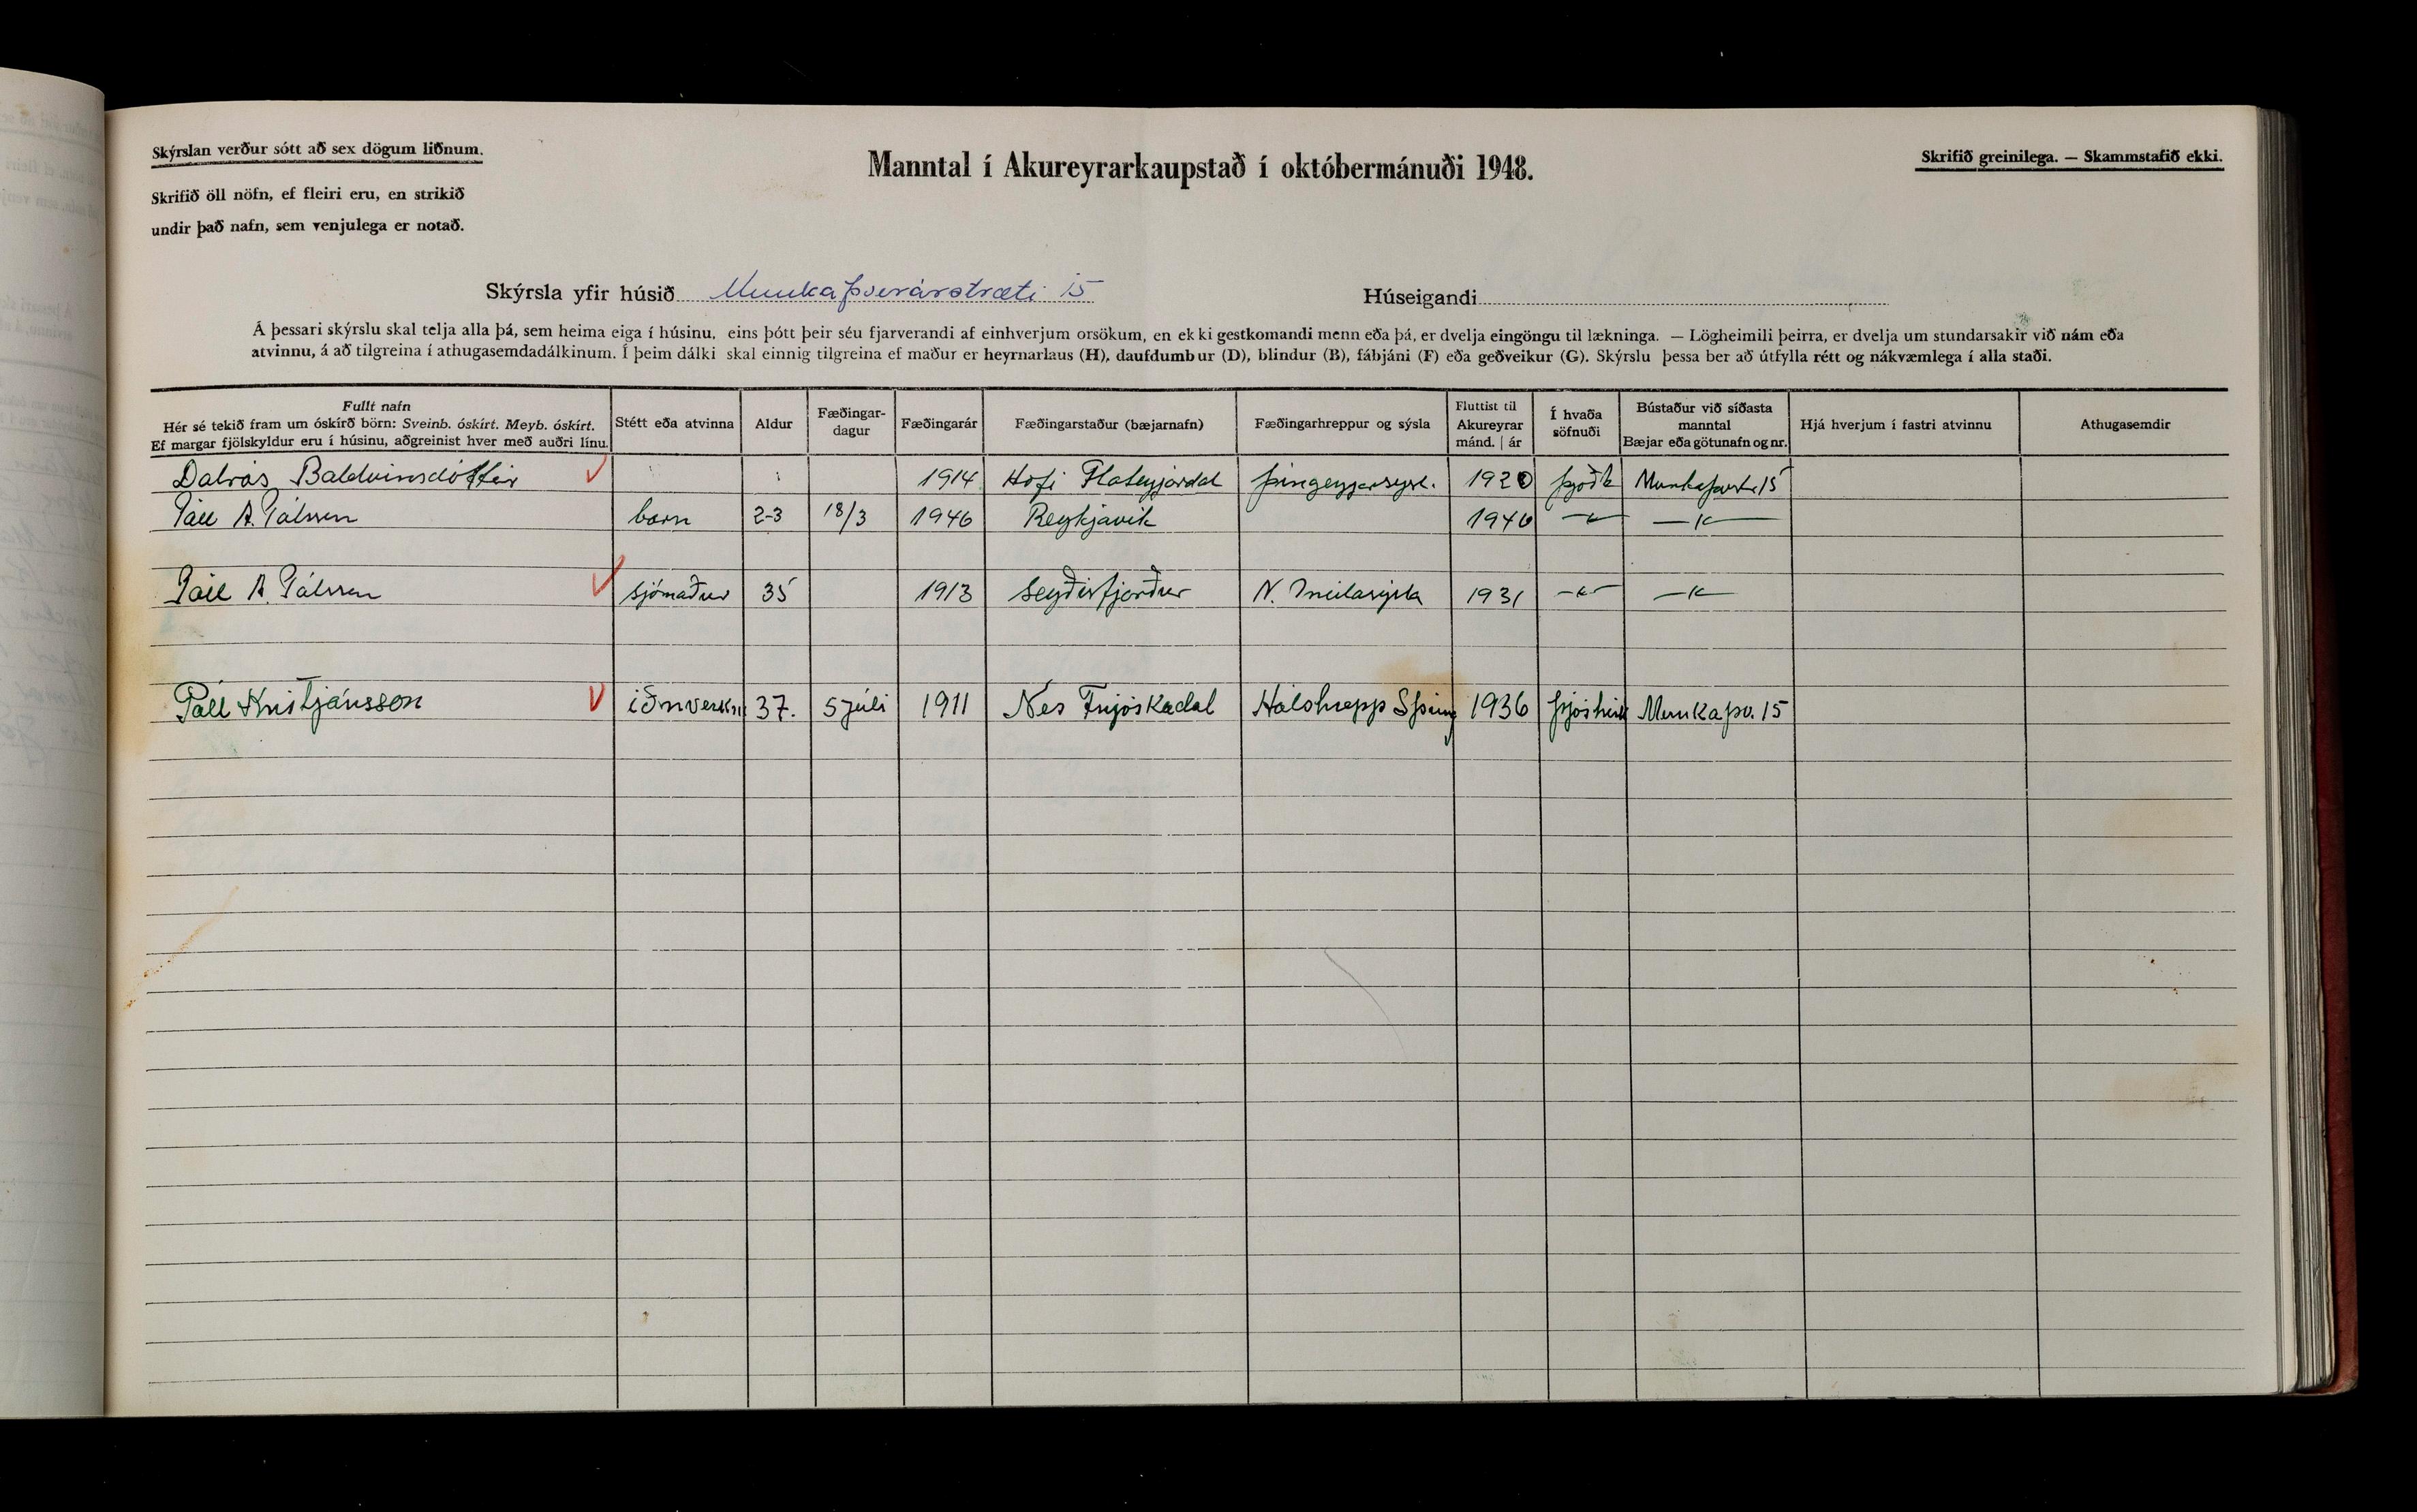 Skýrslan verður sótt að sex dögum liðnum.
Skrifið öll nöfn, ef fleiri eru, en strikið
undir það nafn, sem venjulega er notað.
Manntal í Akureyrarkaupstað í októbermánuði 1948.
Skrifið greinilega. — Skammstafið ekki.
Skýrsla yfir húsið Munkaþverárstræti 15 Húseigandi
Á þessari skýrslu skal telja alla þá, sem heima eiga í húsinu, eins þótt þeir séu fjarverandi af einhverjum orsökum, en ekki gestkomandi menn eða þá, er dvelja eingöngu til lækninga. — Lögheimili þeirra, er dvelja um stundarsakir við nám eða
atvinnu, á að tilgreina í athugasemdadálkinum. Í þeim dálki skal einnig tilgreina ef maður er heyrnarlaus (H), daufdumbur (D), blindur (B), fábjáni (F) eða geðveikur (G). Skýrslu þessa ber að útfylla rétt og nákvæmlega í alla staði.
Fullt nafn
Hér sé tekið fram um óskírð börn: Sveinb. óskírt. Meyb. óskírt.
Ef margar fjölskyldur eru í húsinu, aðgreinist hver með auðri línu.
Stétt eða atvinna
Aldur
Fæðingar-
dagur
Fæðingarár
Fæðingarstaður (bæjarnafn)
Fæðingarhreppur og sýsla
Fluttist til
Akureyrar
mánd. | ár
Í hvaða
söfnuði
Bústaður við síðasta
manntal
Bæjar eða götunafn og nr.
Hjá hverjum í fastri atvinnu
Athugasemdir
Dalrós Baldvinsdóttir 1914 Hofi Flateyjardal Þingeyjarsýsl. 1920 þjóðk
Páll A. Pálsson barn 2-3 18/3 1946 Reykjavík 1946 —〃— —〃—
Páll A. Pálsson sjómaður 35 1913 Seyðisfjörður N. Múlasýsla 1931 —〃— —〃—
Páll Kristjánsson iðnverkm 37. 5 júlí 1911 Nes Fnjóskadal Hálshrepp SÞing 1936 Munkaþv. 15